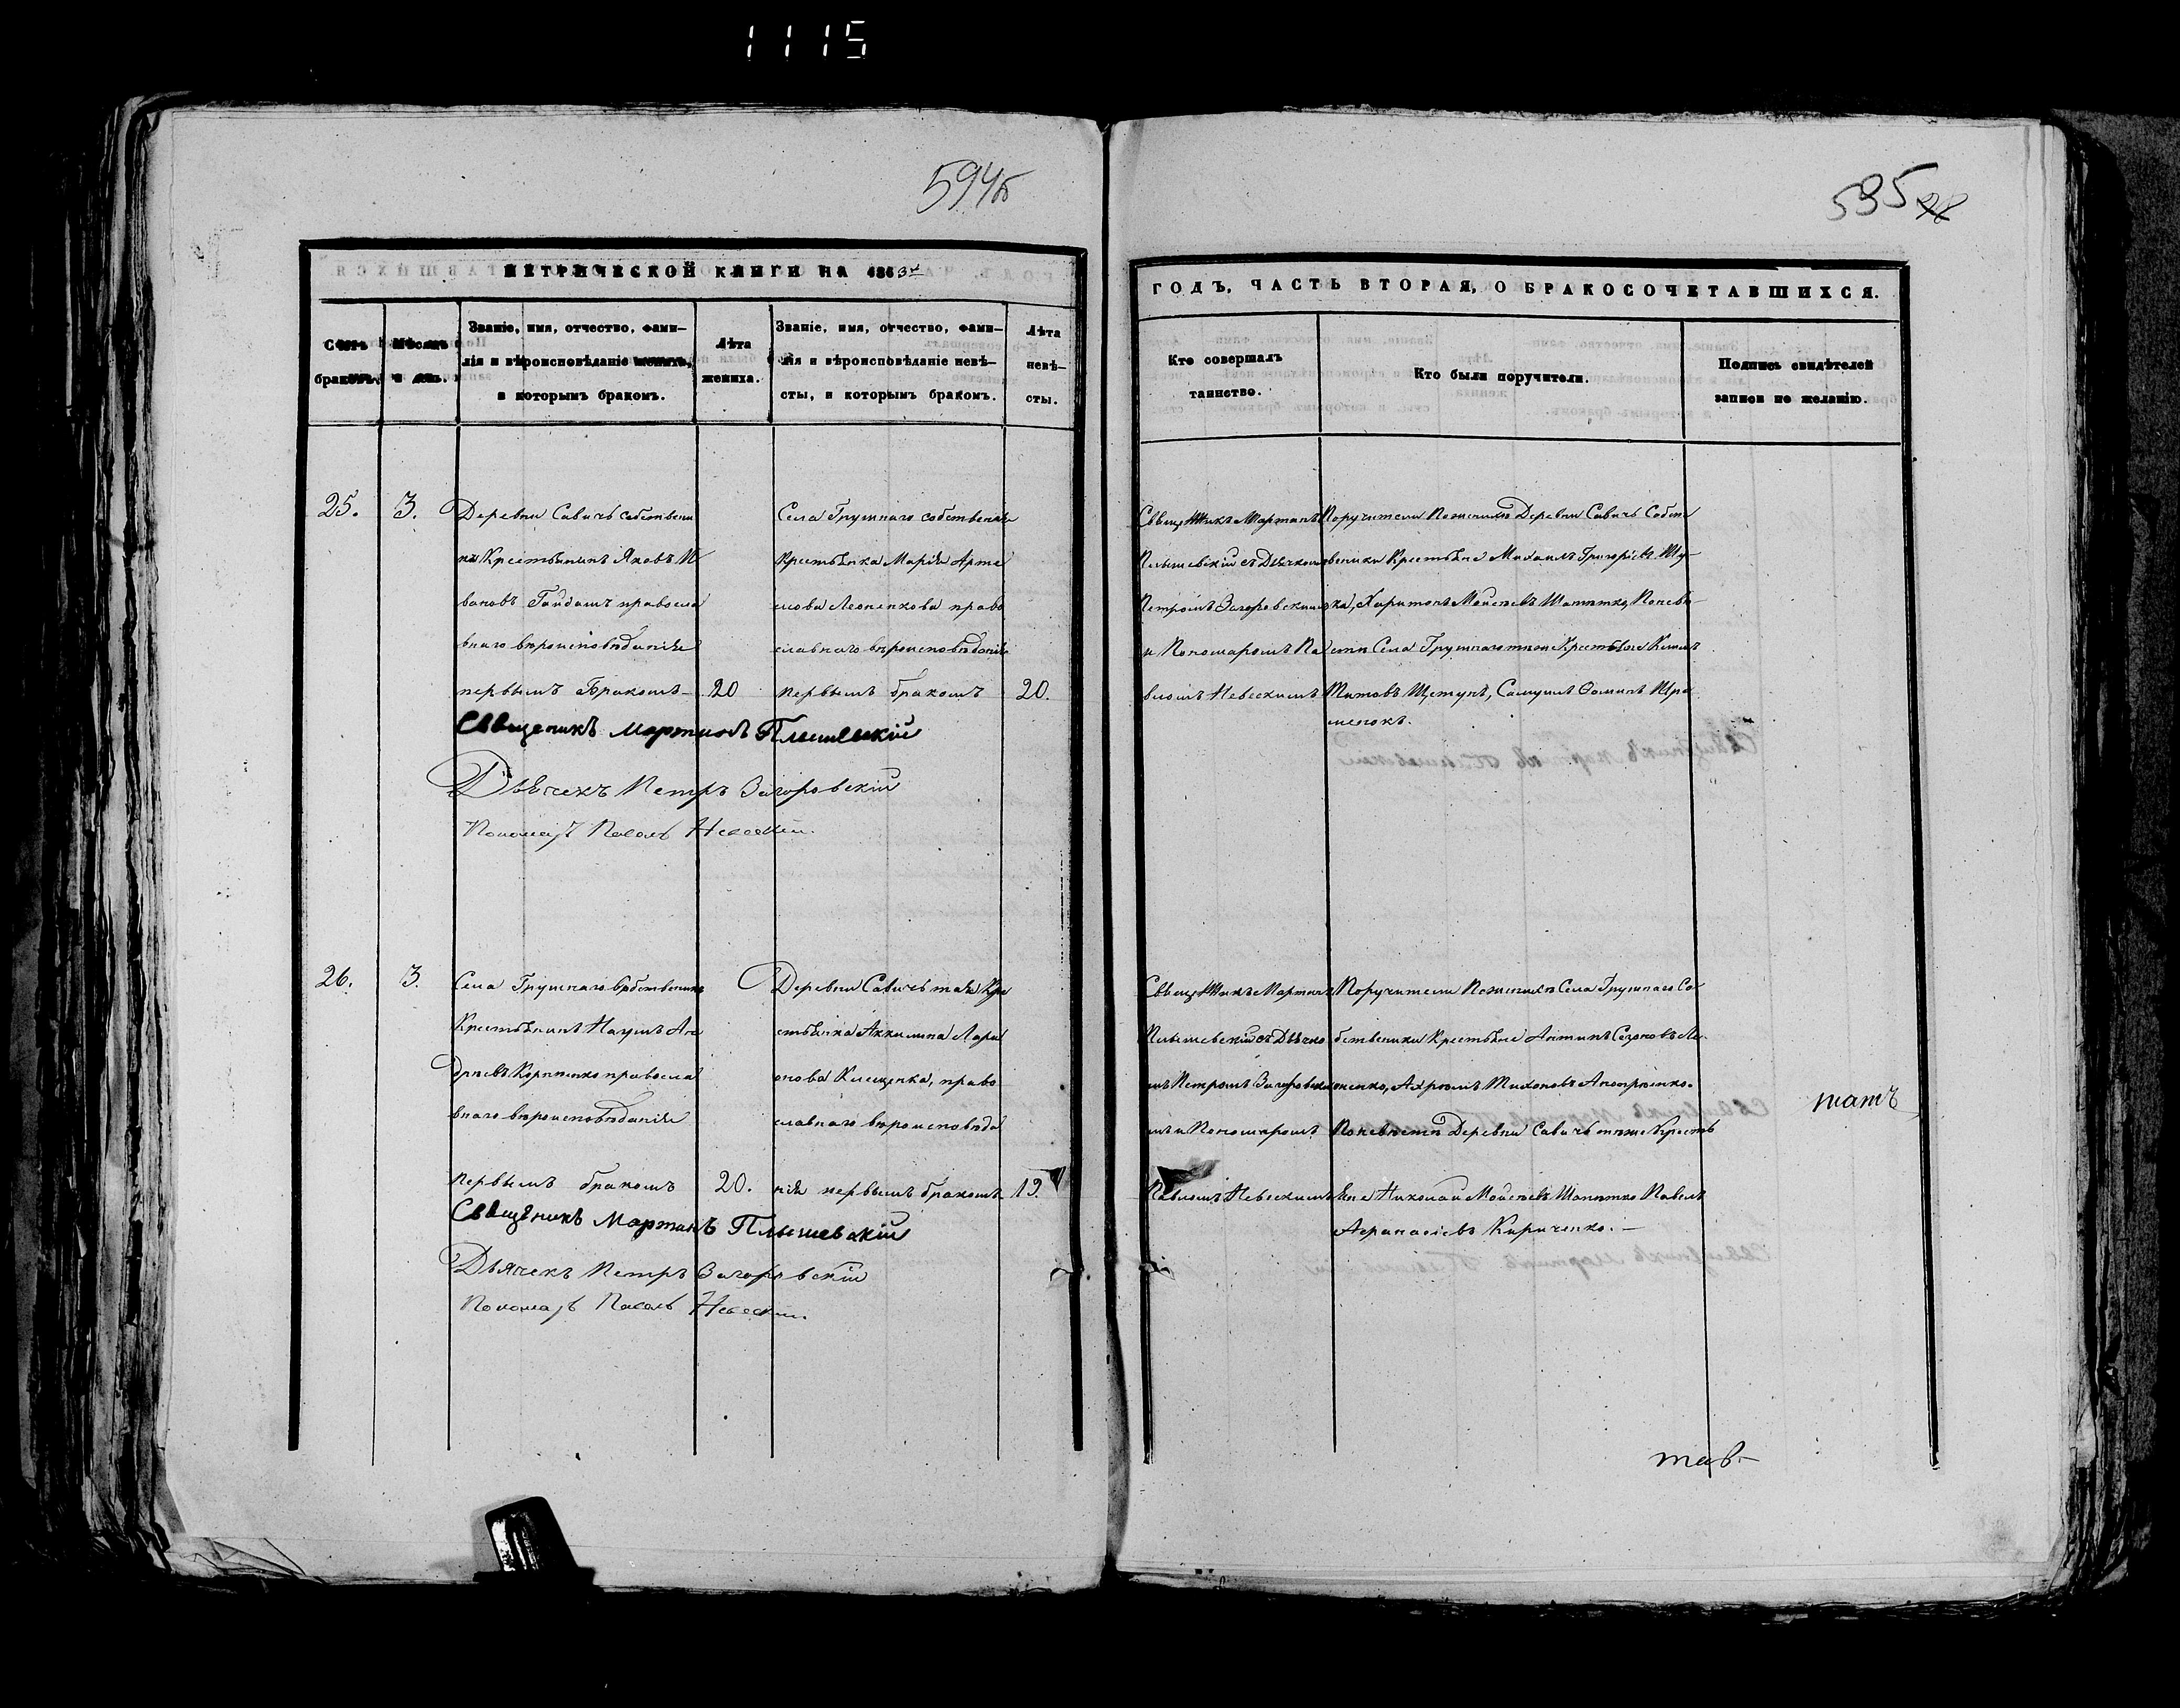 1115
594б
595
МЕТРИЧЕСКОЙ КНИГИ НА 1863й
ГОДЪ, ЧАСТЬ ВТОРАЯ, О БРАКОСОЧЕТАВШИХСЯ.
Счетъ
браковъ.
Мѣсяцъ
и день.
Званіе, имя, отчество, фами-
лія и вѣроисповѣданіе жениха,
и которымъ бракомъ.
Лѣта
жениха.
Званіе, имя, отчество, фами-
лія и вѣроисповѣданіе невѣ-
сты, и которымъ бракомъ.
Лѣта
невѣ-
сты.
Кто совершалъ
таинство.
Кто были поручители.
Подпись свидѣтелей
записи по желанію.
25.
3.
Деревни Савичъ собствени
ки Крестьянинъ Яковъ И
вановъ Гайдашъ правосла
внаго вѣроисповѣданія
первымъ Бракомъ
20
Села Грушнаго собственика
Крестьянка Марія Арте
мова Леоненкова право
славнаго вѣроисповѣданія
первымъ бракомъ
20.
Священикъ Мартинъ
Плышевскій съ Дьячкомъ
Петромъ Загоровскимъ
и Пономаромъ Па
вломъ Невскимъ
Поручители По женихѣ Деревни Савичъ Собст
веники Крестьяне Михаилъ Григоріевъ
ка, Харитонъ Моисѣевъ Шапятко, По невѣ-
стѣ Села Грушнаго Крестьяне
Титовъ Самуилъ Фоминъ
Священикъ Мартинъ Плышевскій
Дьячекъ Петръ Загоровскій
Пономарь Павелъ
26.
3.
Села Грушнаго Собственикъ
Крестьянинъ Наумъ Ан
дреевъ Корпенко правосла
внаго вѣроисповѣданія
первымъ бракомъ
20.
Деревни Савичъ тая Кре
стьянка Акилина Лари
онова Клещенка, право
славнаго вѣроисповѣда
нія первымъ бракомъ
19.
Священикъ Мартинъ
Плышевскій съ Дьячко
мъ Петромъ Загоровски
мъ и Пономаромъ
Павломъ Невскимъ
Поручители По женихѣ Села Грушнаго Со
бственики Крестьяне Антипъ Созоновъ Ле
оненко, Тихоновъ
По невѣстѣ Деревни Савичъ тѣже Кресть
яне Николай Моисѣевъ Шапятко Павелъ
Афанасіевъ Кириченко.—
Священикъ Мартинъ Плышевскій
Дьячекъ Петръ Загоровскій
Пономарь Павелъ